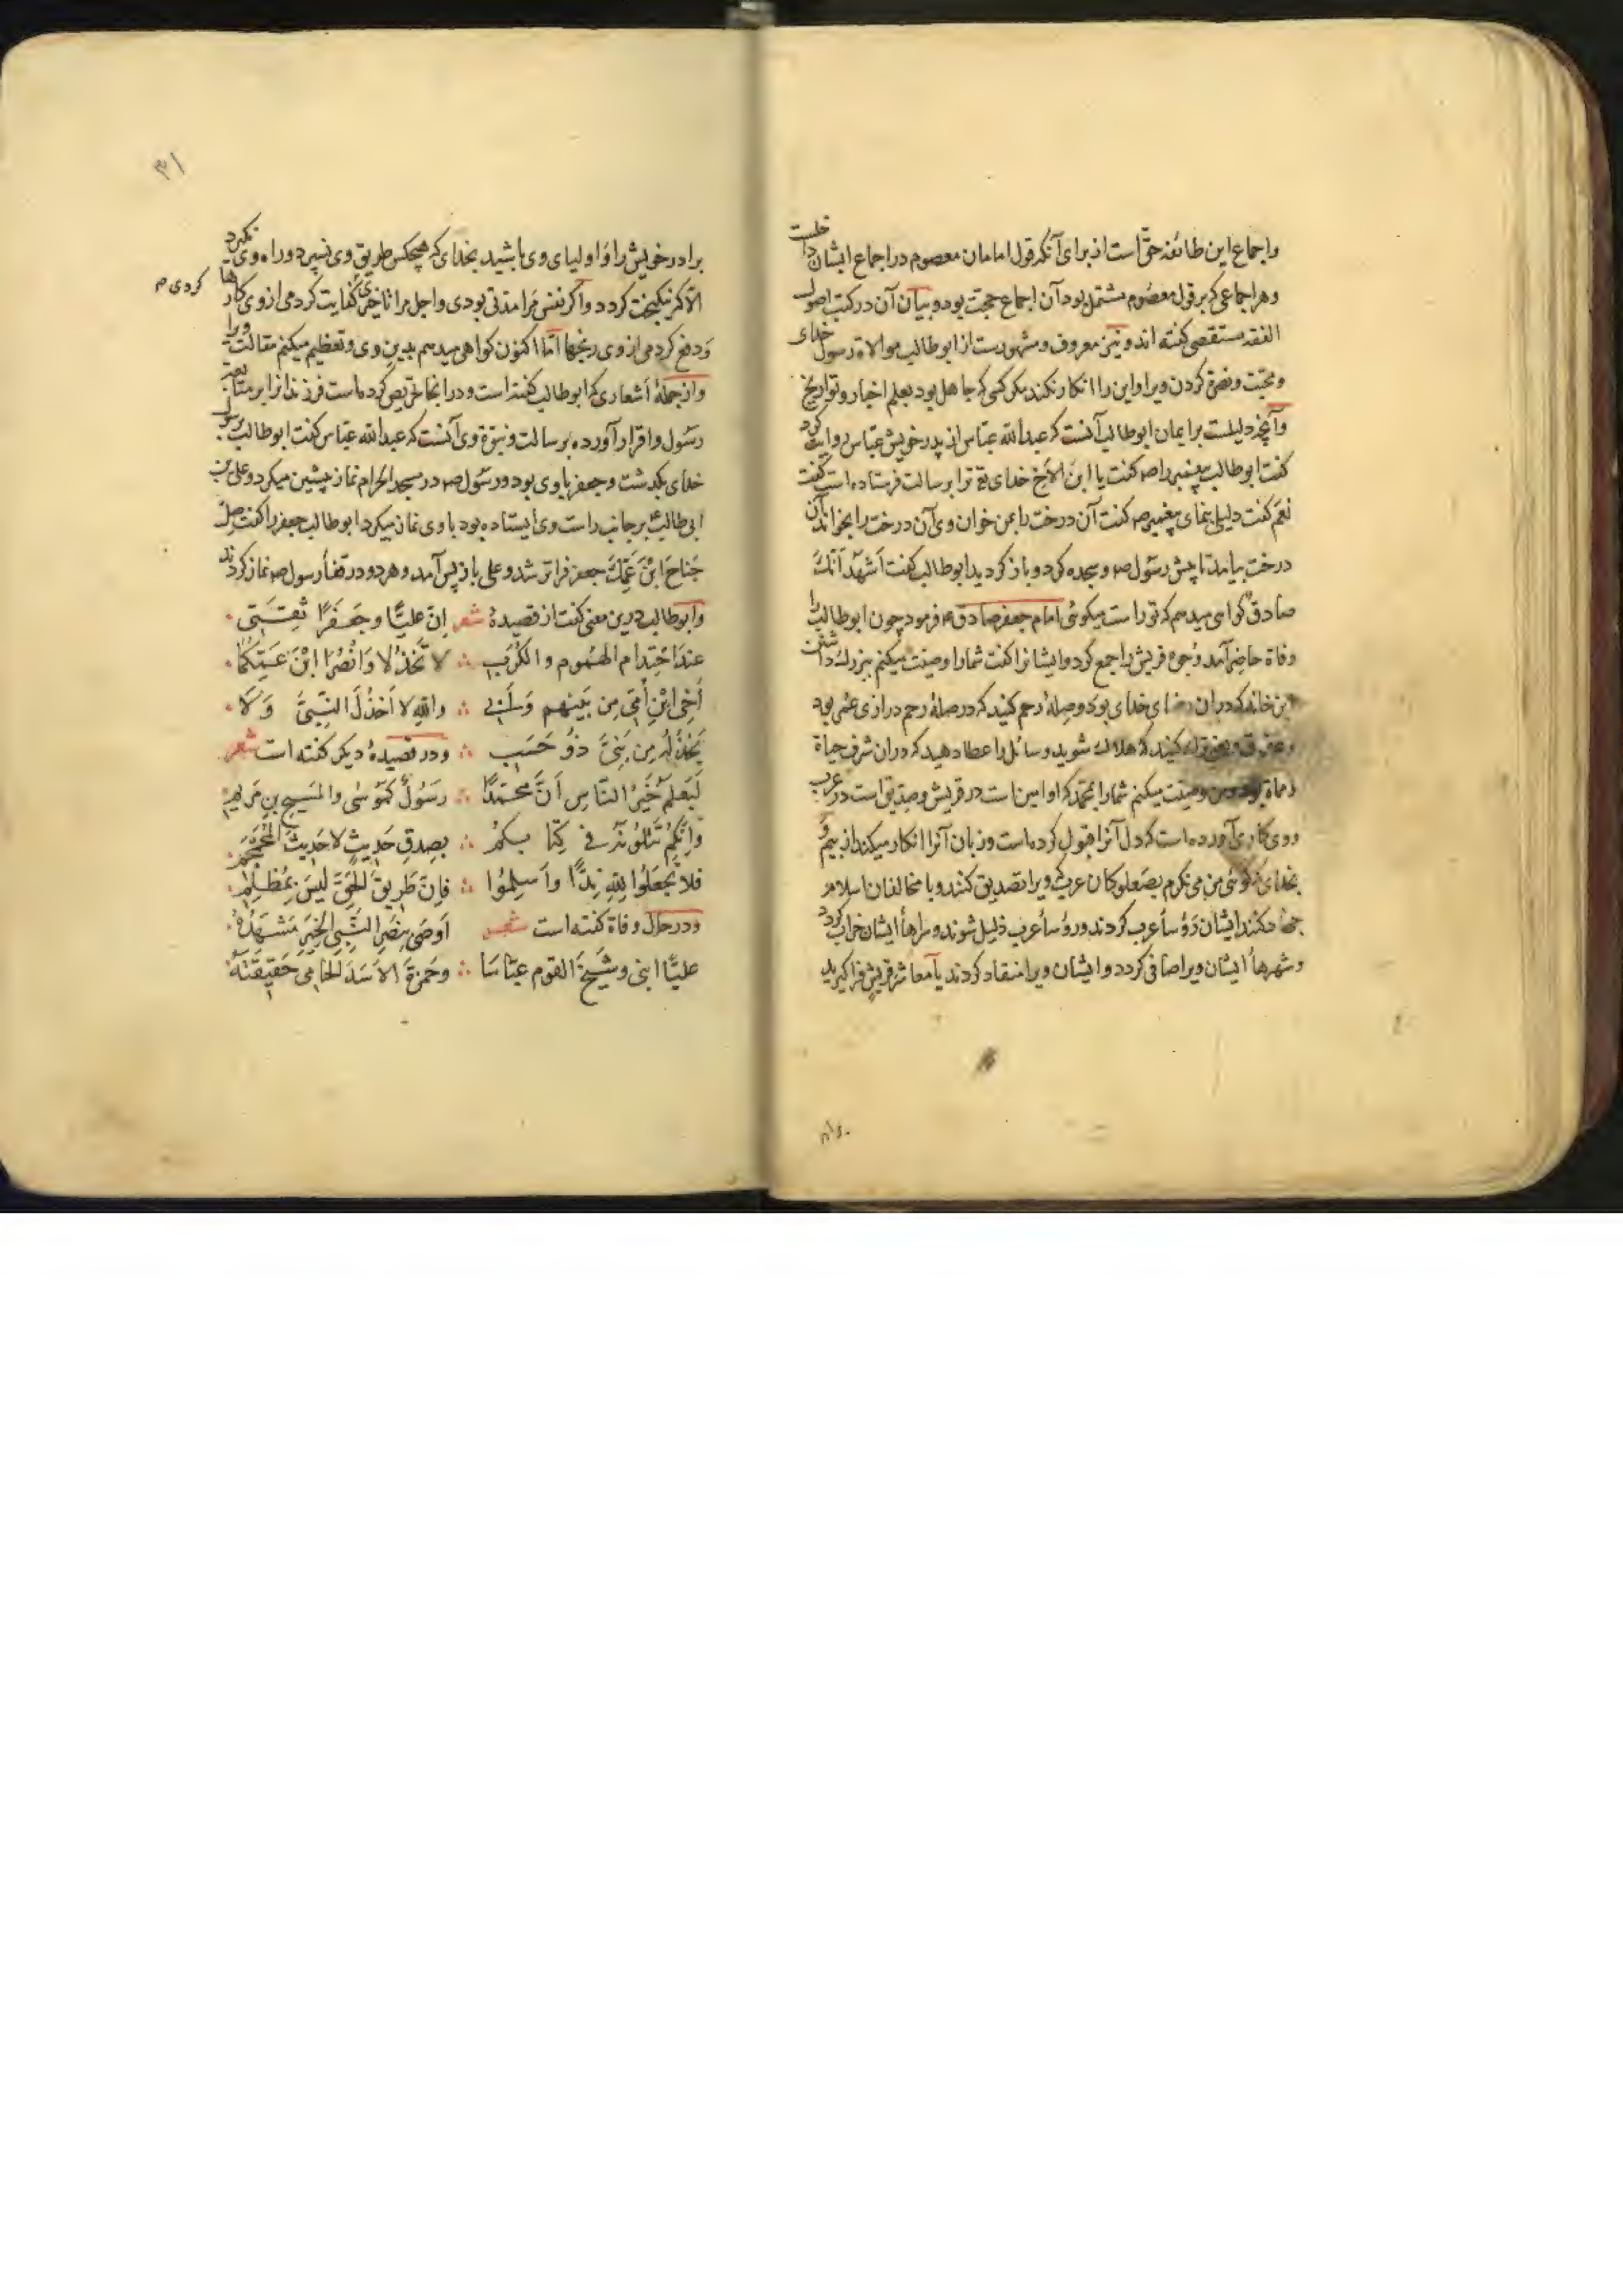 واجماع این طائفه حقّ است از برای آنکه قول امامان معصوم در اجماع ایشان داخلست
وهر اجماعی که بر قول معصوم مشتمل بود آن اجماع حجت بود و بیان آن در کتب اصول
الفقه مستقصی کفته اند و نیز معروف و مشهورست از ابوطالب موالاة رسول خدای
ومحبّت ونصرة کردن ویرا واین را انکار نکند مکر کسی که جاهل بود بعلم اخبار وتواریخ
وآنچه دلیلست بر ایمان ابوطالب آنست که عبدالله عبّاس از پدر خویش عبّاس روایت کرد
کفت ابوطالب پیغمبر را صه کفت یا ابن الاخ خدای تع ترا برسالت فرستاده است کفت
نعم کفت دلیلی بنمای پیغمبر صه کفت آن درخت را بمن خوان وی آن درخت را بخواند آن
درخت بیامد تا پیش رسول صه وسجده کرد و باز کردید ابوطالب کفت اَشهَدُ اَنَّکَ
صادق کواهی میدهم که تو راست میکوئی امام جعفر صادق ع فرمود چون ابوطالب را
وفاة حاضر آمد وجوه قریش را جمع کرد و ایشانرا کفت شمارا وصیّت میکنم ببزرک داشتن
این خانه که در آن رضای خدای بود وصلهٔ رحم کنید که در صلهٔ رحم درازی عمر بود
کنید که هلاک شوید وسائل را عطا دهید که در آن شرف حیاة
ومماة بود ومن وصیّت میکنم شمارا بمحمّد که او امین است در قریش وصدّیق است در عرب
ووی کاری آورده است که دل آنرا قبول کرده است وزبان آنرا انکار میکند از بیم و
بخدای کوئی من می نکرم بصعلوکان عرب که ویرا تصدیق کنند وبا مخالفان اسلام
جهاد کنند ایشان رؤساء عرب کردند ورؤساء عرب ذلیل شوند وسراهاء ایشان خراب کردد
وشهرهاء ایشان ویرا صافی کردد وایشان ویرا منقاد کردند یا معاشر قریش فرا کیرید
۳۱
برادر خویش را واولیای وی باشید بخدای که هیچکس طریق وی نسپرد وراه وی نکیرد
الّا که نیکبخت کردد واکر نفس مرا مدّتی بودی واجل مرا تأخیری کفایت کردمی از وی کارها
کردی م
ودفع کردمی از وی رنجها امّا اکنون کواهی میدهم بدین وی وتعظیم میکنم مقالت ویرا
واز جملهٔ اشعاری که ابوطالب کفته است ودر آنجا تحریص کرده است فرزندانرا بر متابعت
رسول واقرار آورده برسالت ونبوّة وی آنست که عبدالله عبّاس کفت ابوطالب برسول
خدای بکذشت وجعفر با وی بود ورسول صه در مسجد الحرام نماز پیشین میکرد وعلی بن
ابی طالب ع بر جانب راست وی ایستاده بود با وی نماز میکرد ابوطالب جعفر را کفت صِلْ
جَناحَ ابْنِ عَمِّکَ جعفر فراتر شد وعلی باز پس آمد وهر دو در قفاء رسول صه نماز کردند
وابوطالب درین معنی کفت از قصیدهٔ شعر اِنّ علیًّا وجَعفَرًا ثِقَتی
عِندَ احْتِدامِ الهُمُومِ والکُرَبِ ∴ لا تَخْذُلا وَانْصُرَا ابْنَ عَمِّکُمَا
اَخِی ابْنِ اُمّی مِن بَینِهِم وَاَبی ∴ واللهِ لا اَخْذُلُ النَّبِیَّ وَلَا
یَخْذُلُهُ مِن بَنِیَّ ذوُ حَسَبِ ∴ ودر قصیدهٔ دیکر کفته است شعر
لَیَعلَمُ خَیرُ النّاسِ اَنَّ مُحمّدًا ∴ رَسُولٌ کَمُوسَی والمَسیحِ بنِ مَریَمِ
وَاِنَّکُم تَتلُونَهُ فی کِتابِکُم ∴ بِصِدقِ حَدِیثٍ لا حَدِیثِ المُجَمْجِمِ
فلا تَجعَلُوا لِلّهِ نِدًّا وَاَسلِمُوا ∴ فَاِنّ طَرِیقَ الحَقِّ لَیسَ بِمُظلِمِ
ودر حال وفاة کفته است شعر اُوصِی بِنَصرِ النَّبِی الخَیرِ مَشهَدُهُ
علیًّا ابنی وشَیخَ القومِ عبّاسَا ∴ وحَمزَةَ الاَسَدَ الحامِی حَقِیقَتَهُ